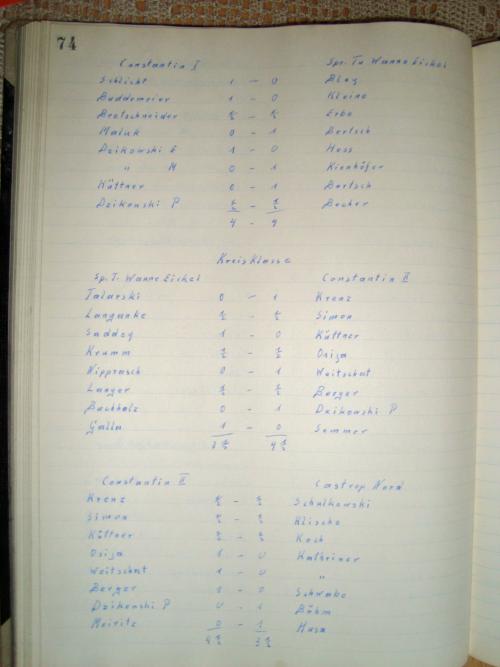 74
Constantin I Spr. Tu Wanne Eickel
Schlicht 1 - 0 Bley
Buddemeier 1 - 0 Kleine
Bretschneider ½ - ½ Erbe
Maluk 0 - 1 Bertsch
Dzikowski E 1 - 0 Hess
" M 0 - 1 Kienhöfer
Küttner 0 - 1 Bertsch
Dzikowski P ½ - ½ Becher
4 - 4
Kreisklasse
Sp. T. Wanne Eickel Constantin II
Talarski 0 - 1 Krenz
Langanke ½ - ½ Simon
Saddey 1 - 0 Küttner
Krumm ½ - ½ Osiza
Nipprasch 0 - 1 Weitschat
Langer ½ - ½ Berger
Buchholz 0 - 1 Dzikowski P
Galla 1 - 0 Semmer
3½ 4½
Constantin II Castrop Nord
Krenz ½ - ½ Schulkowski
Simon ½ - ½ Klische
Küttner ½ - ½ Koch
Osiza 1 - 0 Kathriner
Weitschat 1 - 0 "
Berger 1 - 0 Schwabe
Dzikowski P 0 - 1 Böhm
Meiritz 0 - 1 Husa
4½ 3½